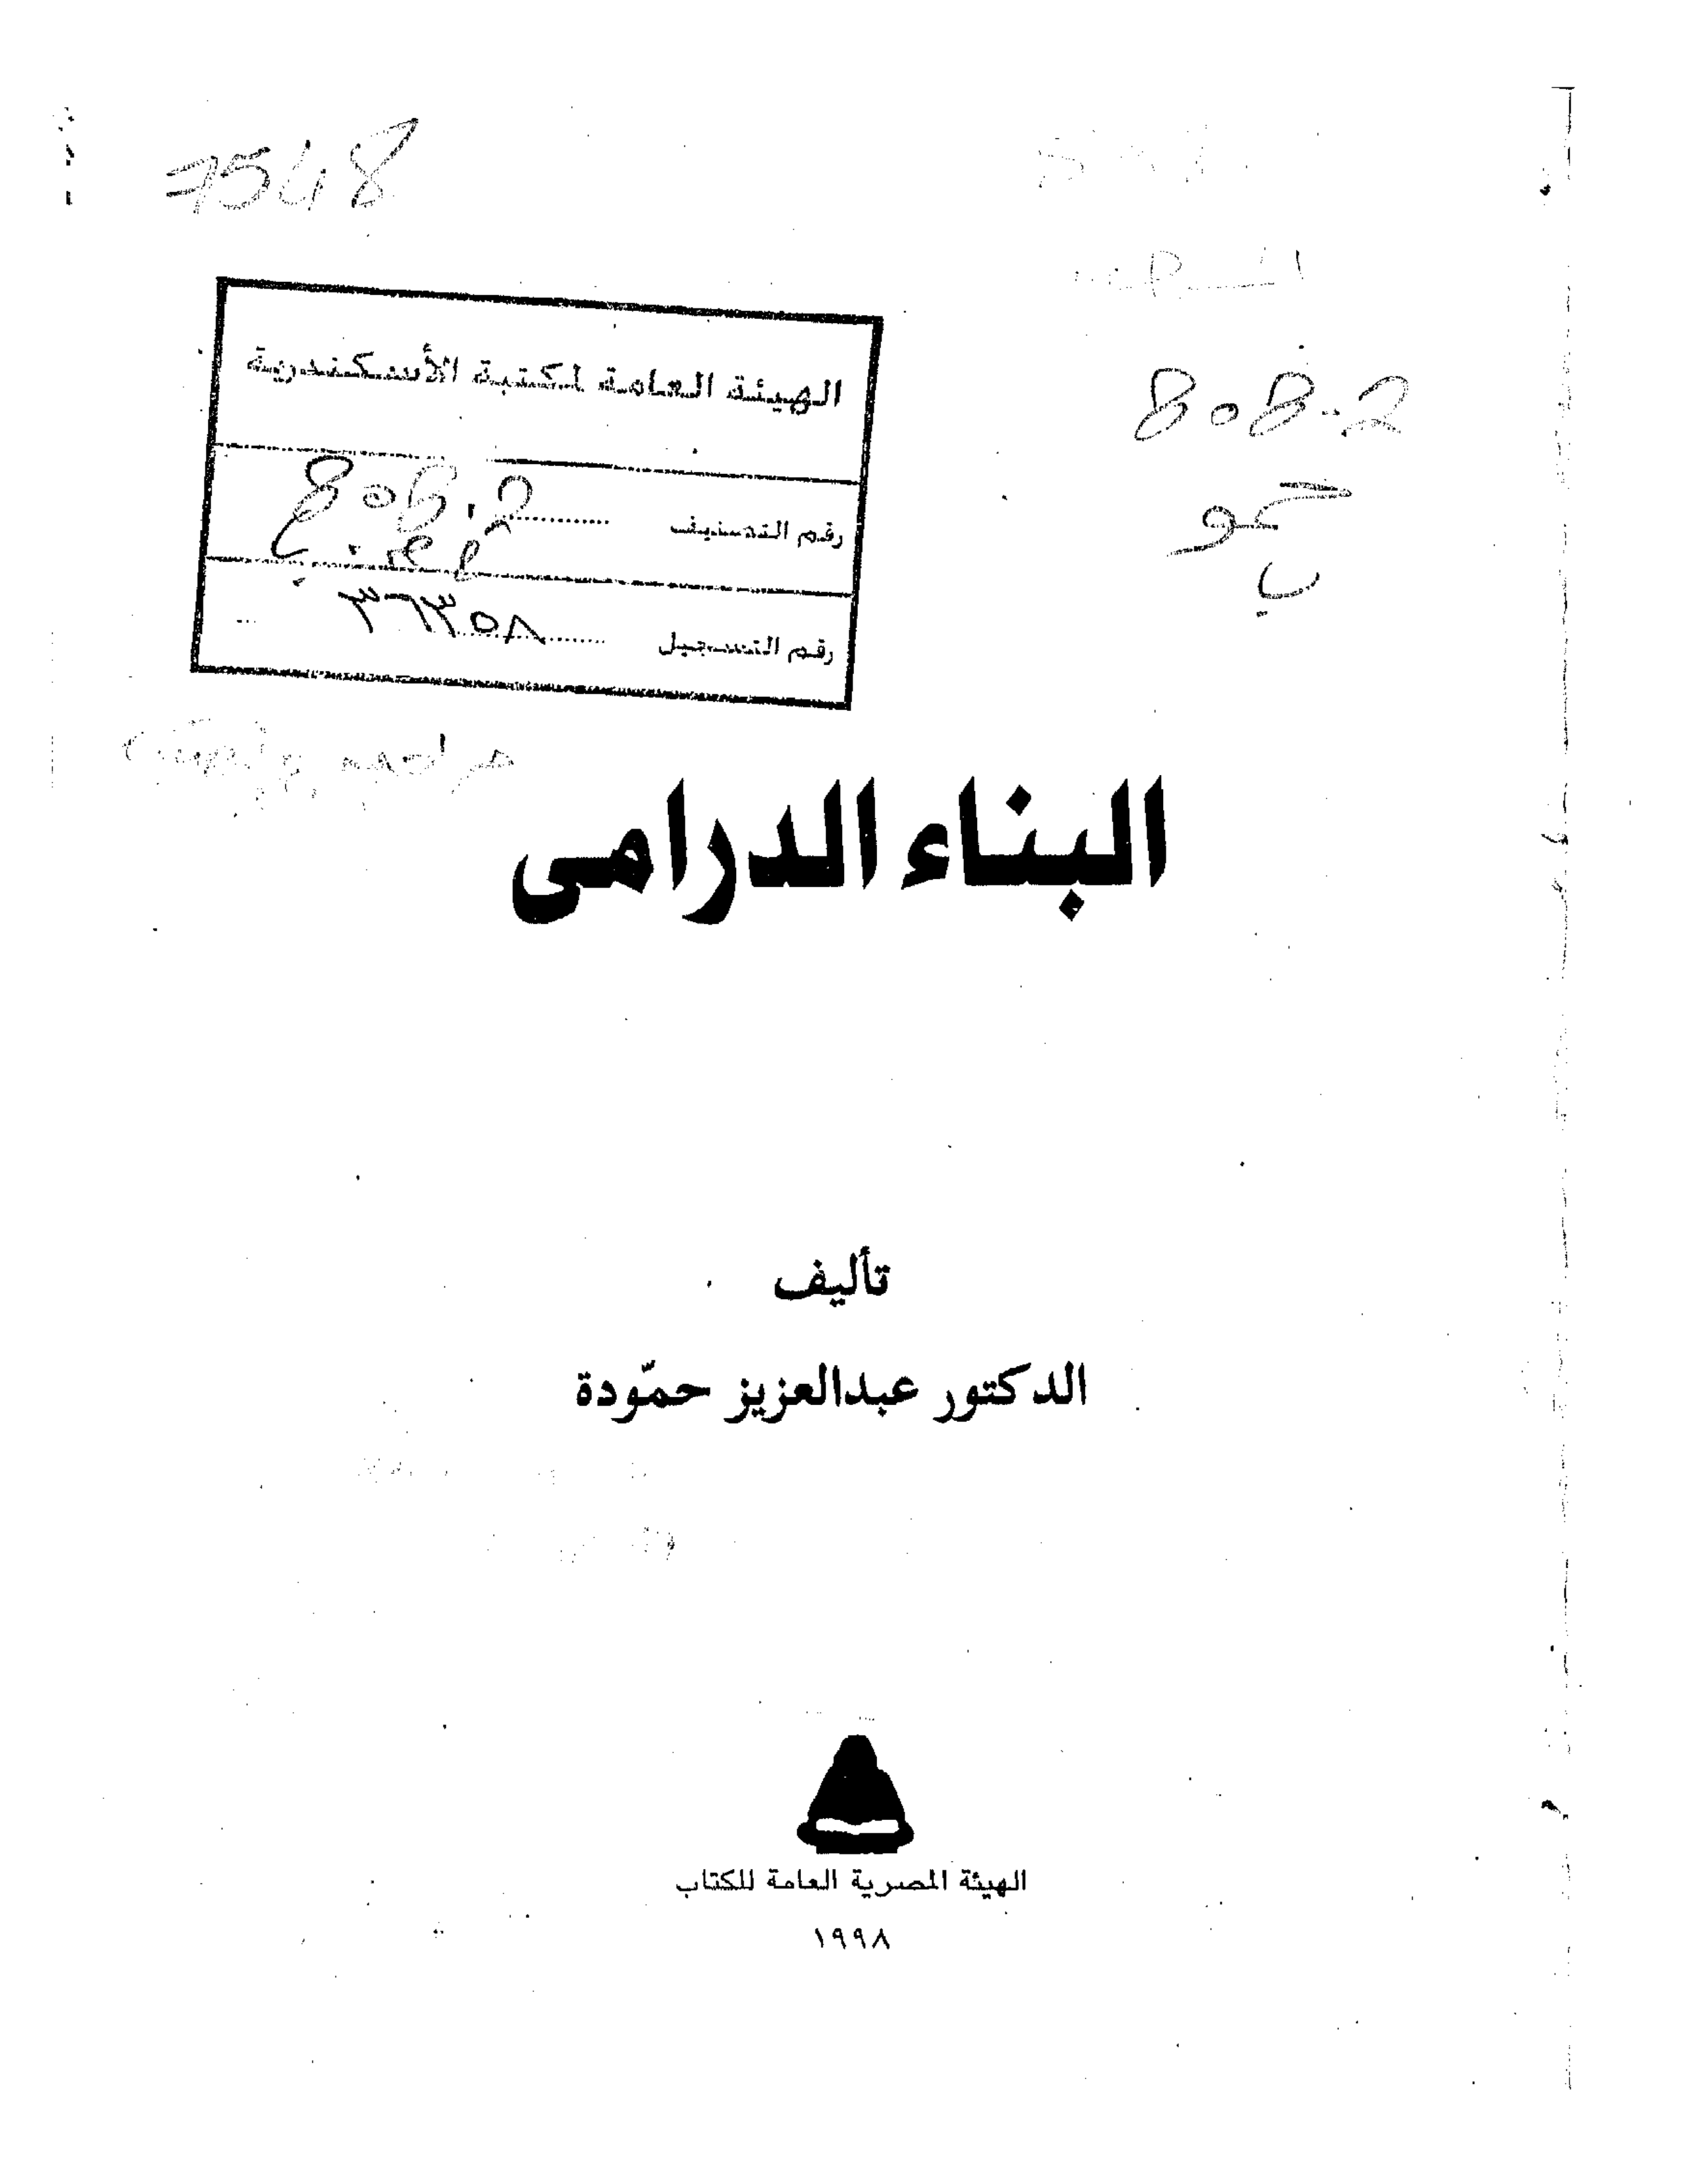 7548
الهيئة العامة لمكتبة الأسكندرية
رقم التصنيف 808.2
رقم التسجيل ٣٦٣٥٨
808.2
حمو
ب
البناء الدرامى
تأليف
الدكتور عبدالعزيز حمّودة
الهيئة المصرية العامة للكتاب
١٩٩٨